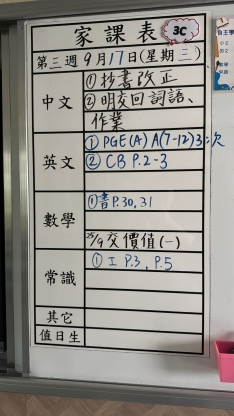 家課表
3C
第三週 9月17日(星期三)
中文
①抄書改正
②明交回詞語、
作業
英文
①PGE(A) A(7-12)3次
②CB P.2-3
數學
①書P.30,31
25/9交價值(一)
常識
①工P.3,P.5
其它
值日生